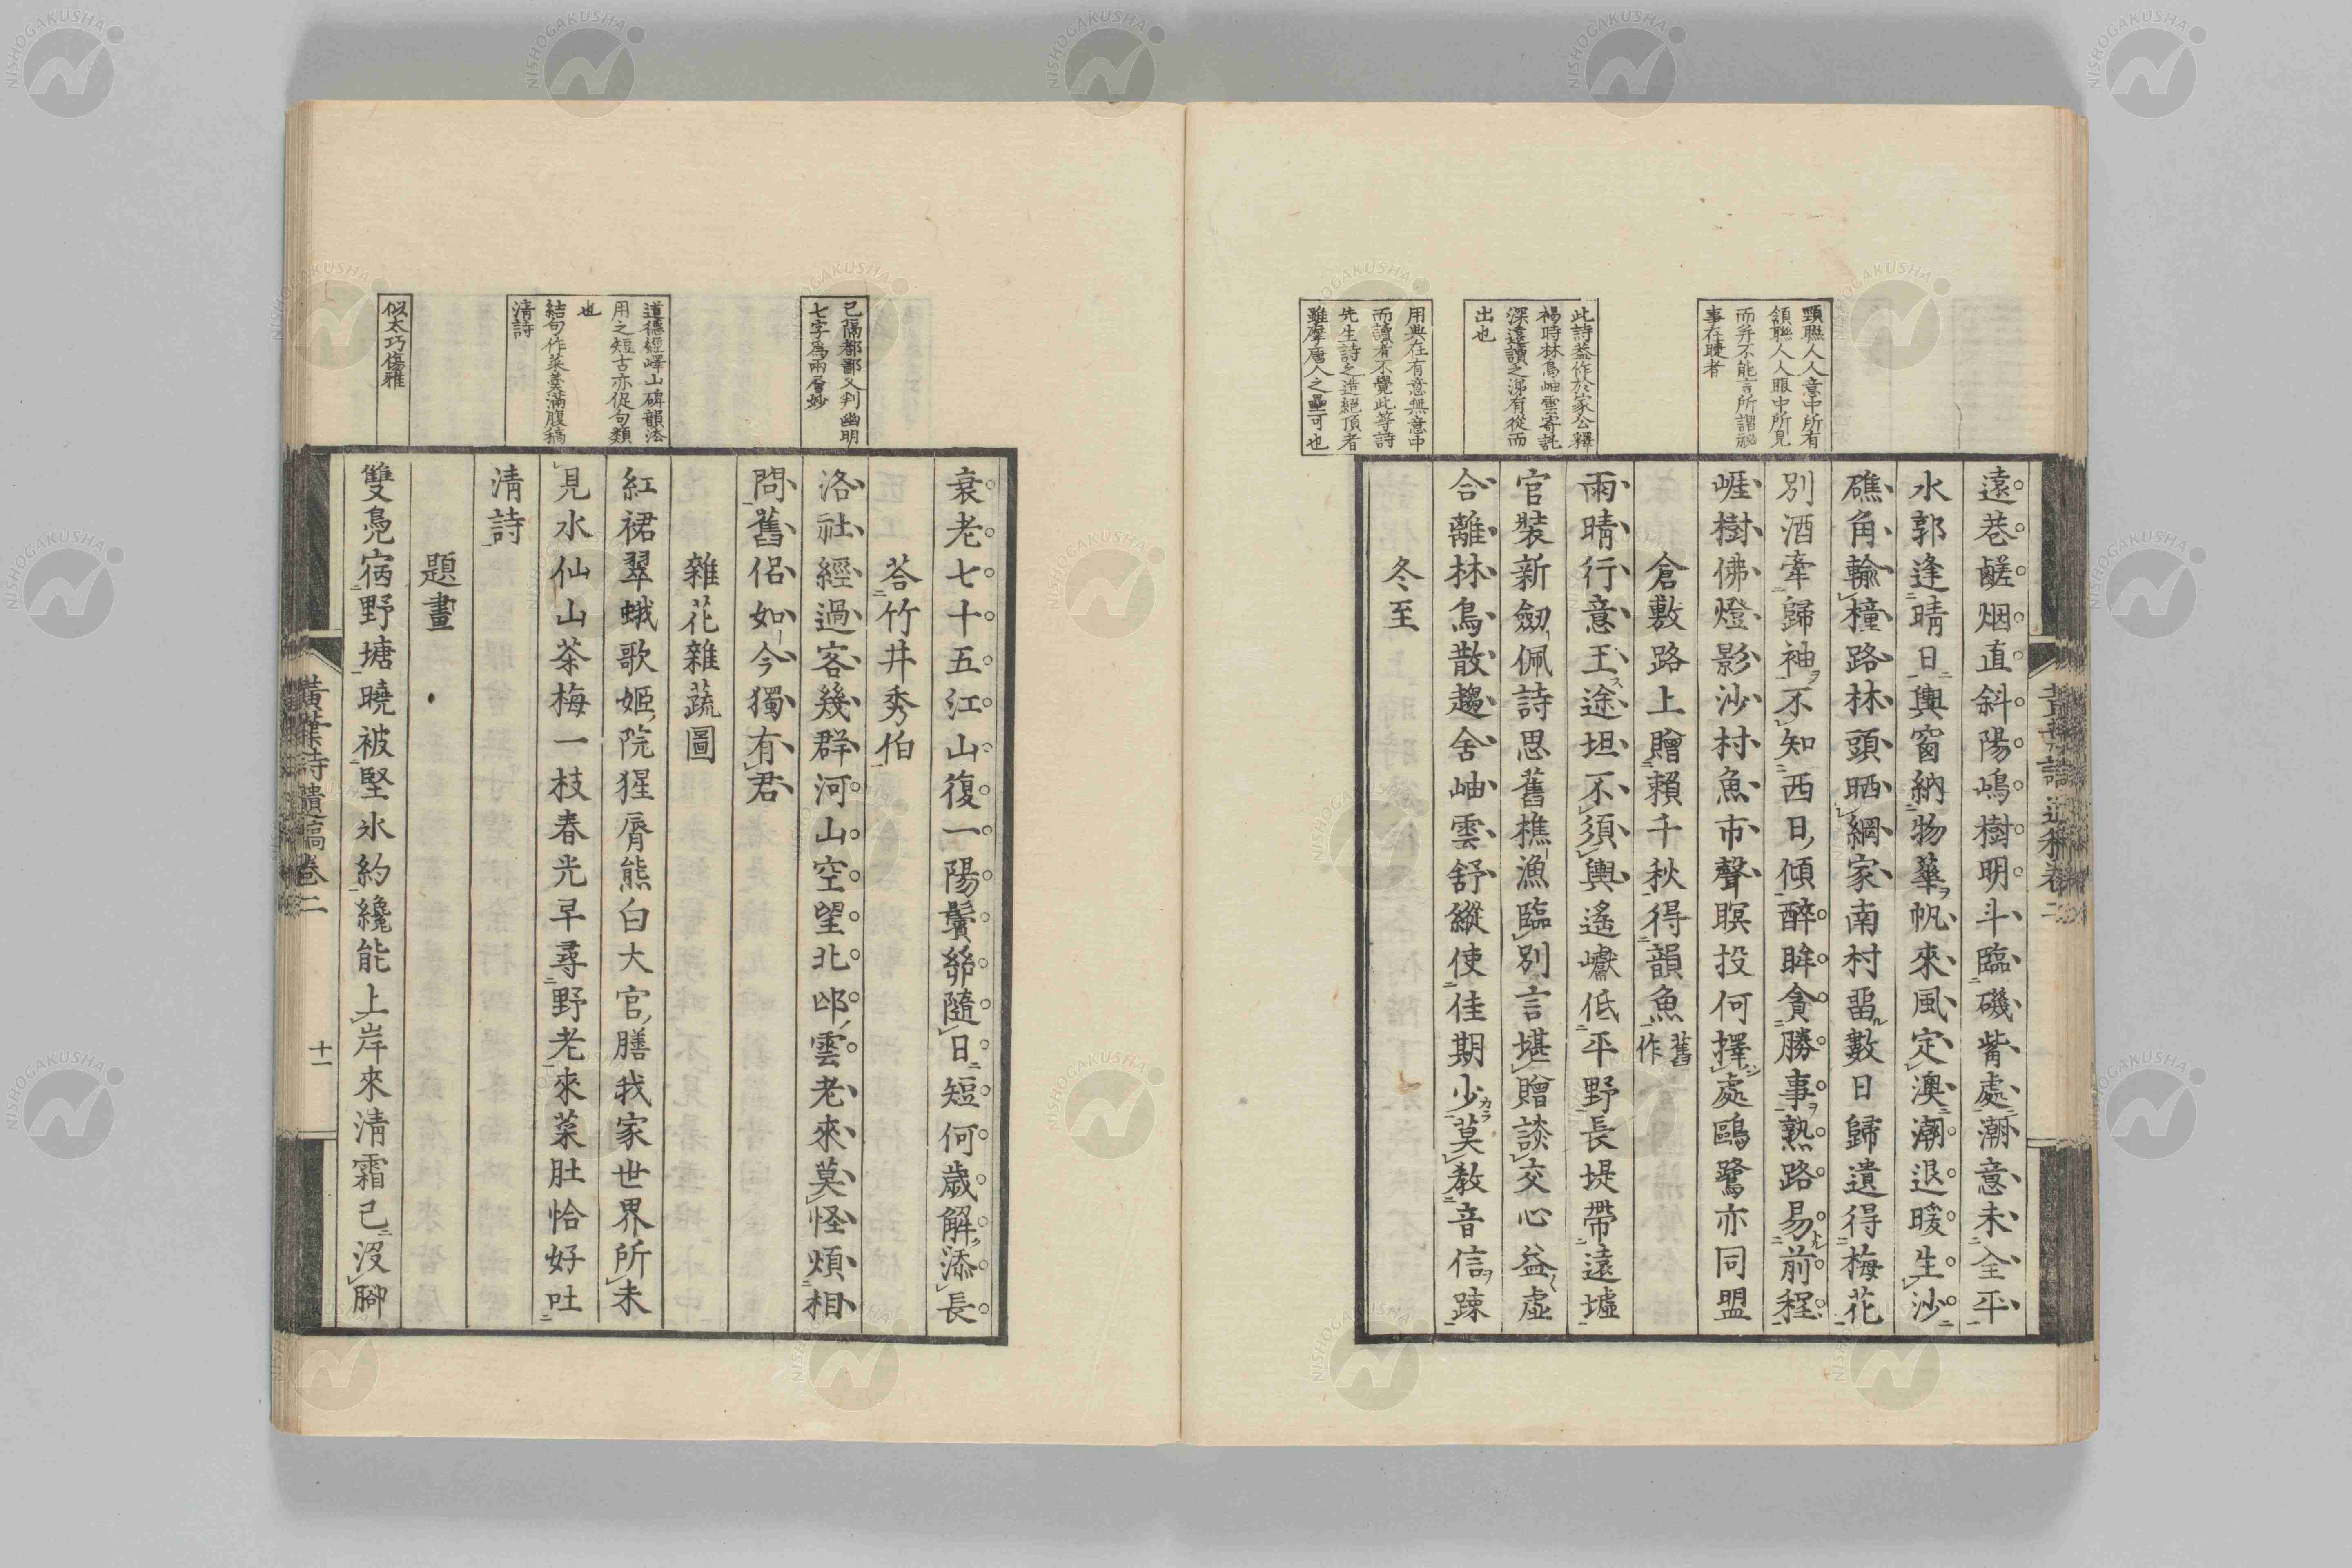 頸聯人人意中所有
頷聯人人眼中所見
而弁不能言所謂祕
事在睫者
此詩蓋作於家公釋
褐時林鳥岫雲寄託
深遠讀之涕有從而
出也
用典在有意無意中
而讀者不覺此等詩
先生詩之造絕頂者
雖摩唐人之壘可也
遠巷鹺烟直斜陽嶋樹明斗臨磯觜處潮意未全平
水郭逢晴日輿窗納物華帆來風定澳潮退暖生沙
礁角輸橦路林頭晒網家南村畱數日歸遺得梅花
別酒牽歸袖不知西日傾醉眸貪勝事熟路易前程
崕樹佛燈影沙村魚市聲暝投何擇處鷗鷺亦同盟
倉敷路上贈賴千秋得韻魚舊作
雨晴行意王途坦不須輿遙巘低平野長堤帶遠墟
官裝新劒佩詩思舊樵漁臨別言堪贈談交心益虛
合離林鳥散趨舍岫雲舒縱使佳期少莫教音信踈
冬至
黃葉詩遺稿卷二
已隔都鄙又判幽明
七字爲兩層妙
道德經嶧山碑韻法
用之短古亦促句類
也
結句作菜羹滿腹稿
清詩
似太巧傷雅
衰老七十五江山復一陽鬢絲隨日短何歲解添長
荅竹井秀伯
洛社經過客幾群河山空望北邙雲老來莫怪煩相
問舊侶如今獨有君
雜花雜蔬圖
紅裙翠蛾歌姬院猩脣熊白大官膳我家世界所未
見水仙山茶梅一枝春光早尋野老來菜肚恰好吐
清詩
題畫
雙鳧宿野塘曉被堅氷約纔能上岸來清霜已沒腳
黃葉詩遺稿卷二
十一
NISHOGAKUSHA